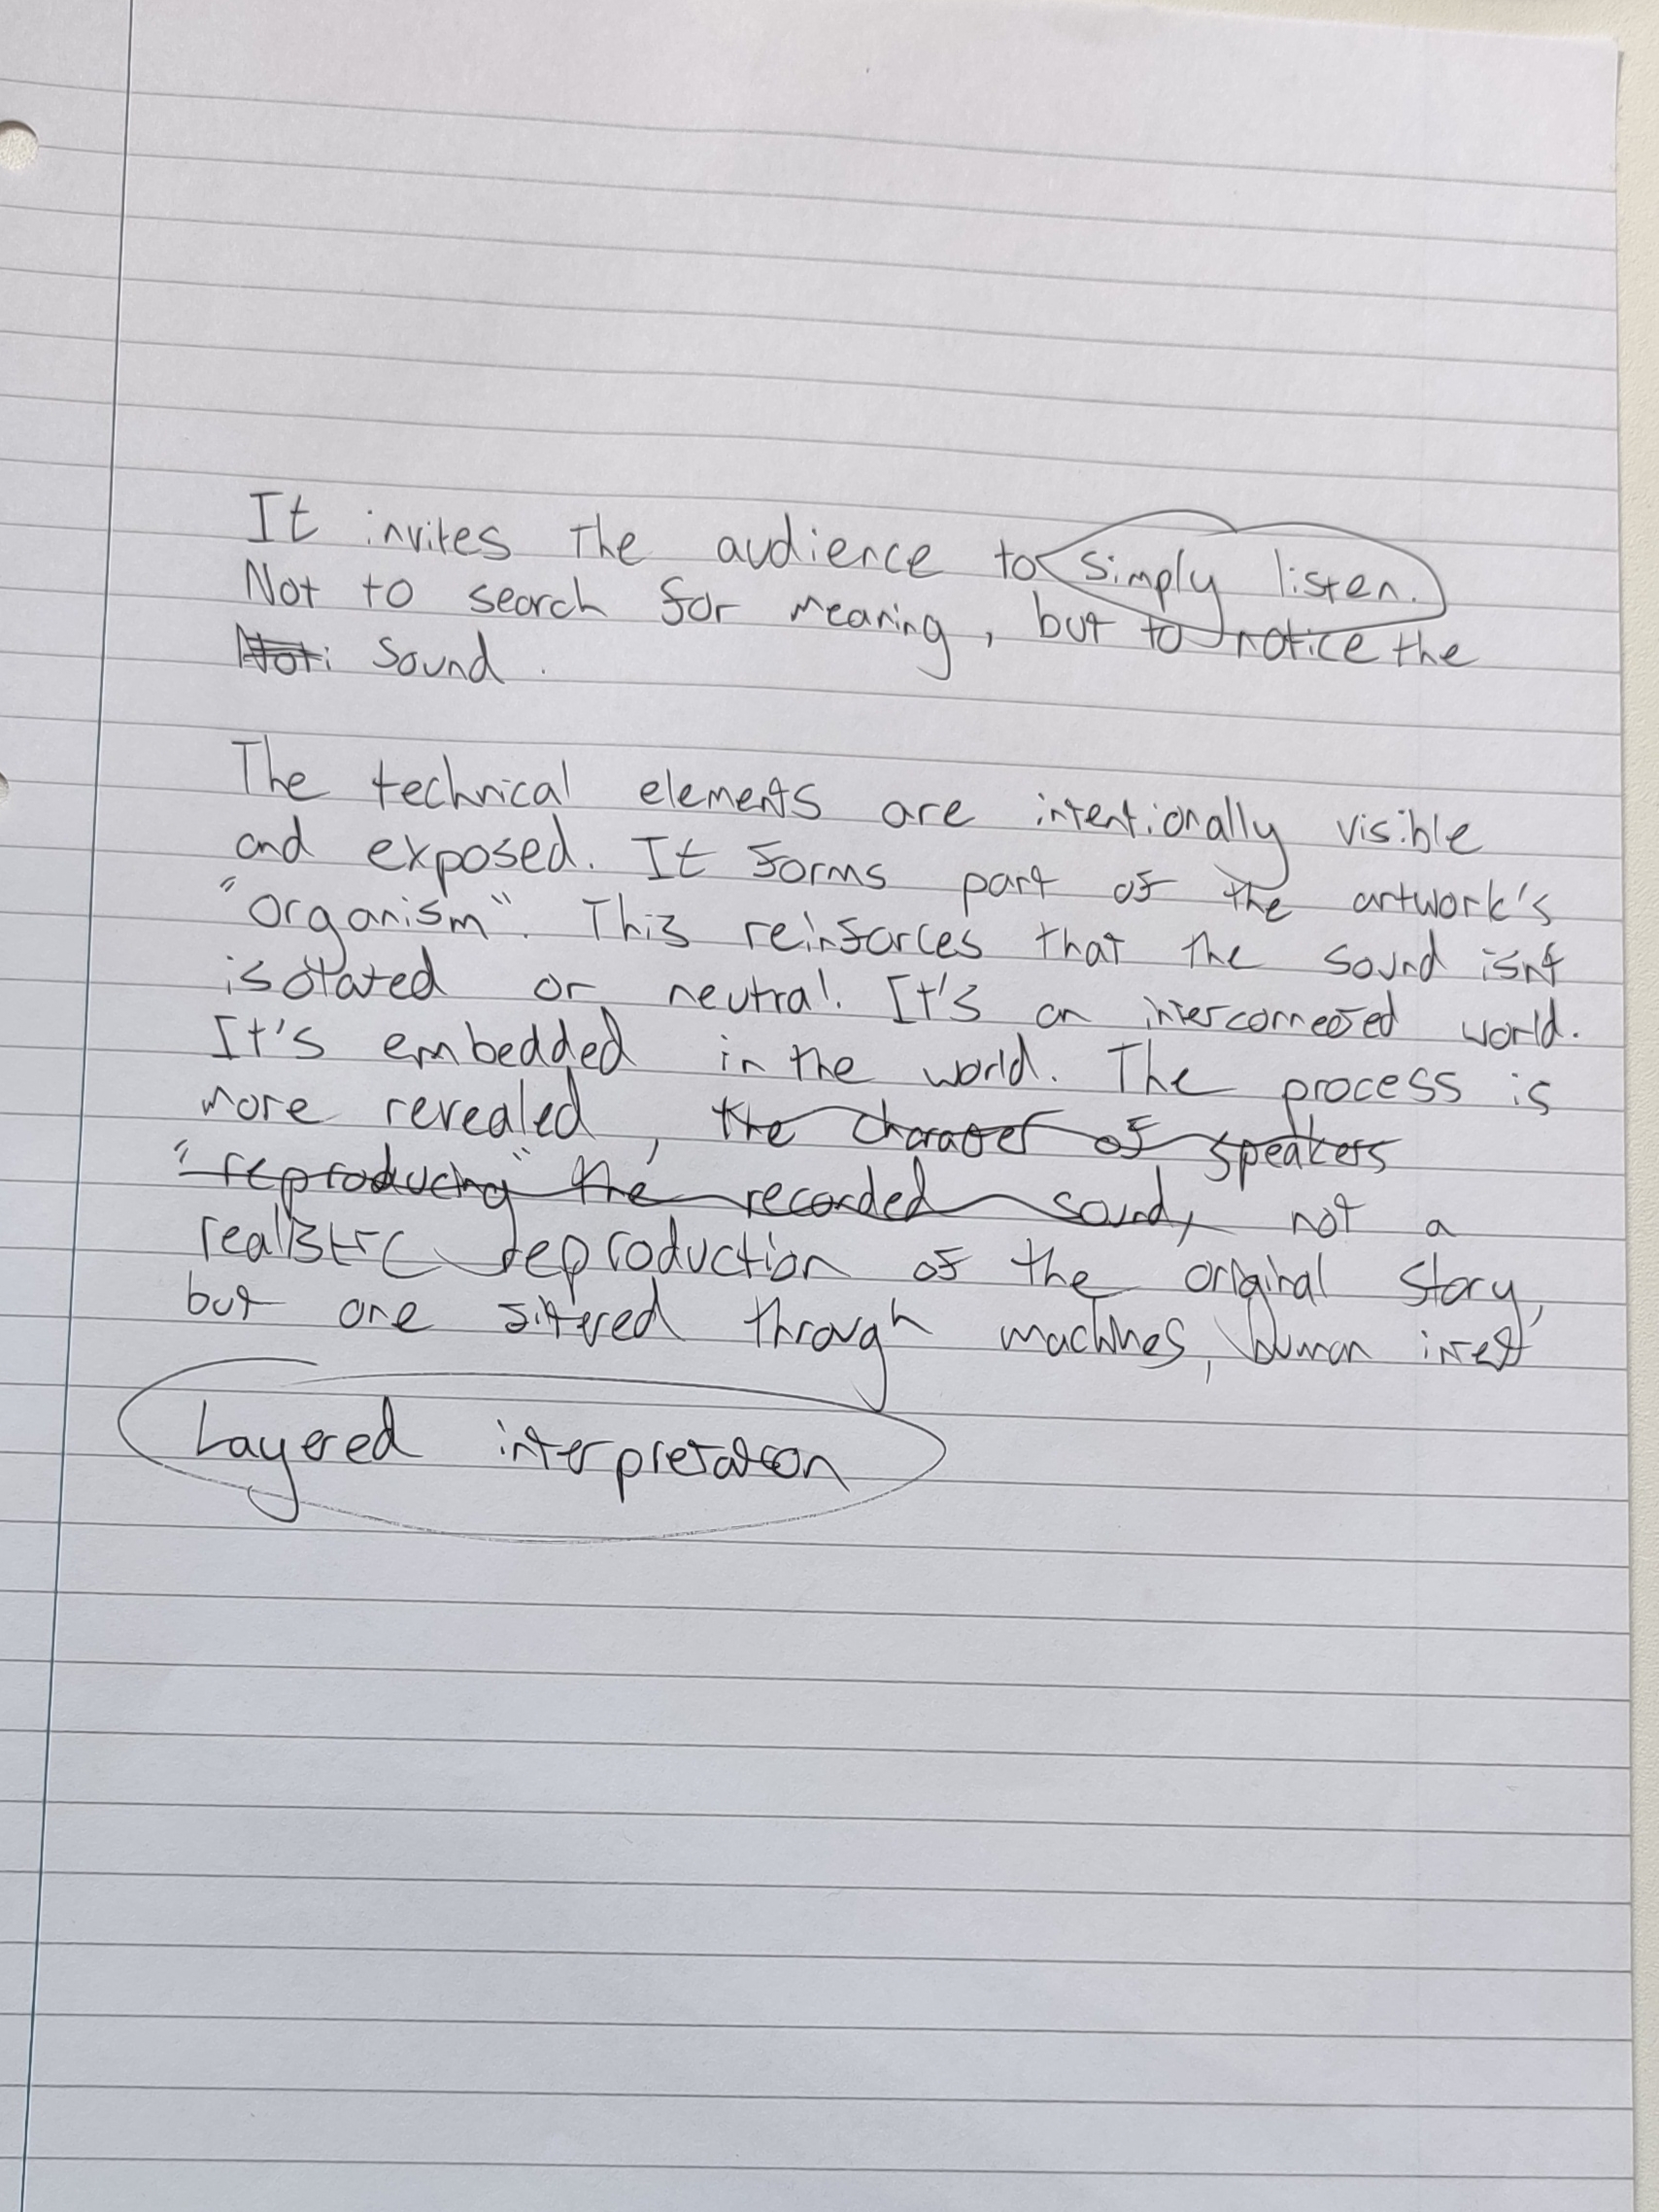 It invites the audience to simply listen.
Not to search for meaning, but to notice the
Noti sound.
The technical elements are intentionally visible
and exposed. It forms part of the artwork's
"organism". This reinforces that the sound isnt
isolated or neutral. It's an interconnected world.
It's embedded in the world. The process is
more revealed, the character of speakers
"reproducing" the recorded sound, not a
realistic reproduction of the original story,
but one filtered through machines, human
Layered interpretation